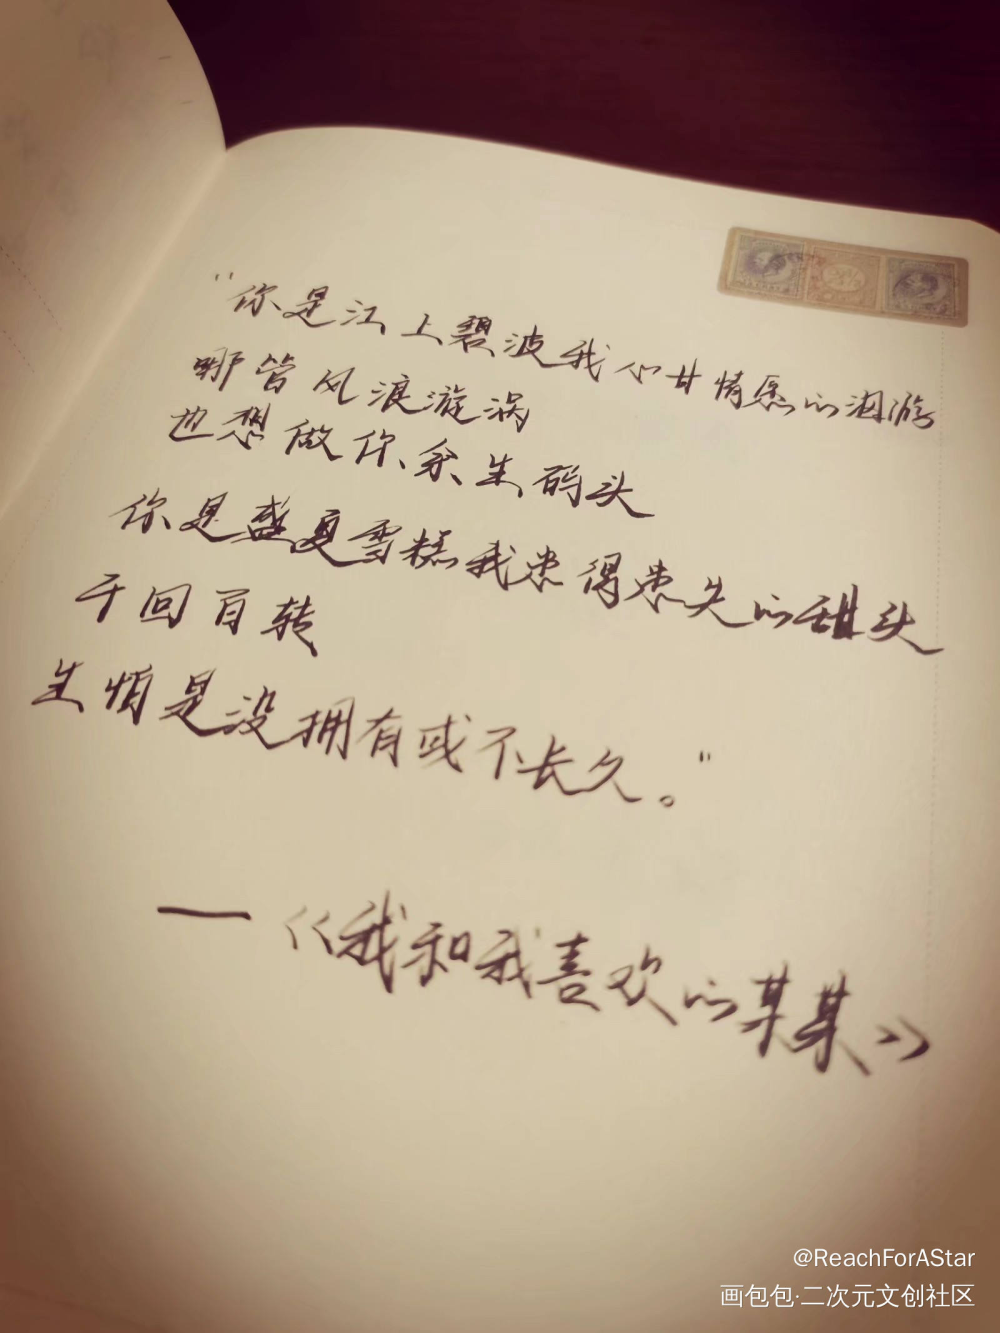 “你是江上碧波我心甘情愿的洄游
哪管风浪漩涡
也想做你余生码头
你是盛夏雪糕我患得患失的甜头
千回百转
生怕是没拥有或不长久。”
——《我和我喜欢的某某》
@ReachForAStar
画包包·二次元文创社区